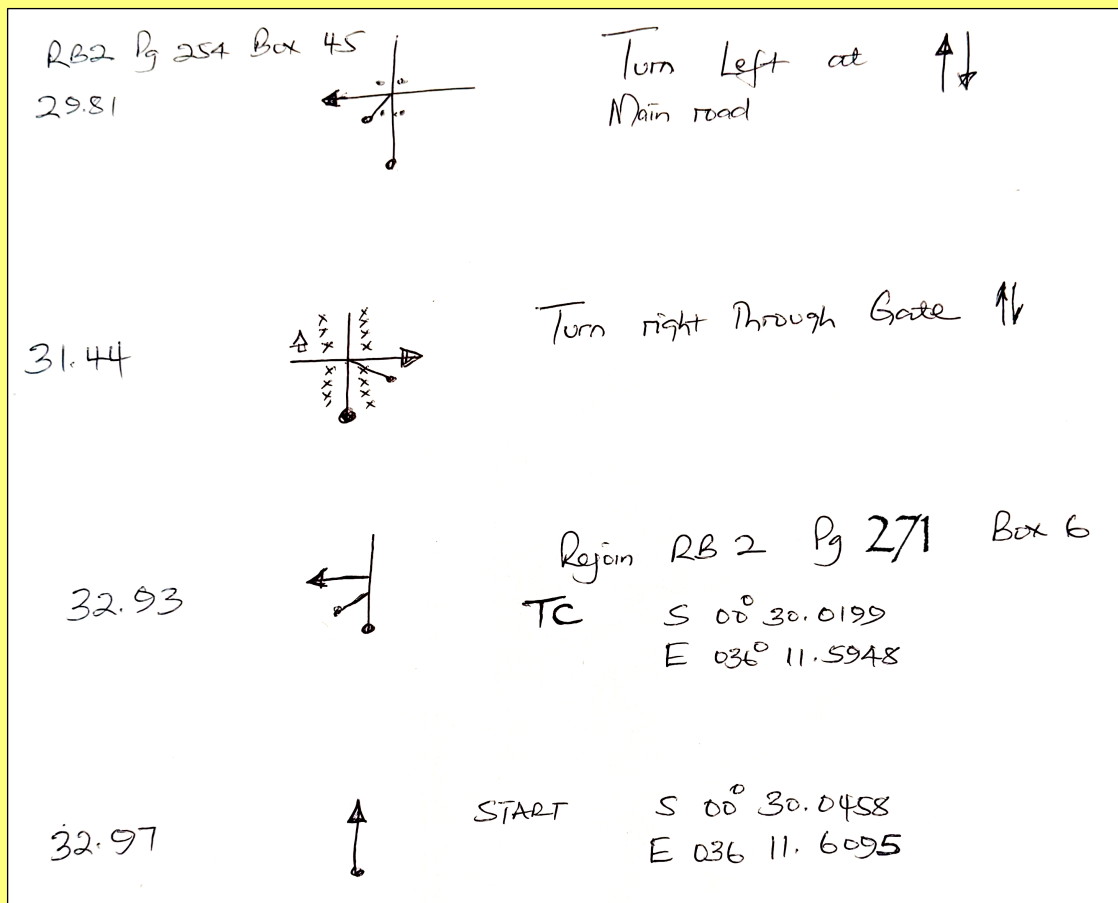 RB2 Pg 254 Box 45
29.81
Turn Left at
Main road
31.44
Turn right Through Gate
Rejoin RB 2 Pg 271 Box 6
32.93
TC S 00° 30.0199
E 036° 11.5948
START S 00° 30.0458
32.97
E 036 11.6095